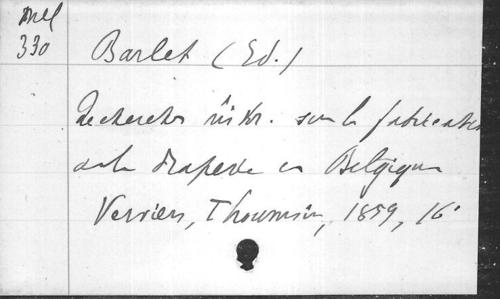 Mél
330
Barlet (Ed.)
Recherches histr. sur la fabrication
de la draperie en Belgique
Verviers, Thoumsin, 1859, 16°